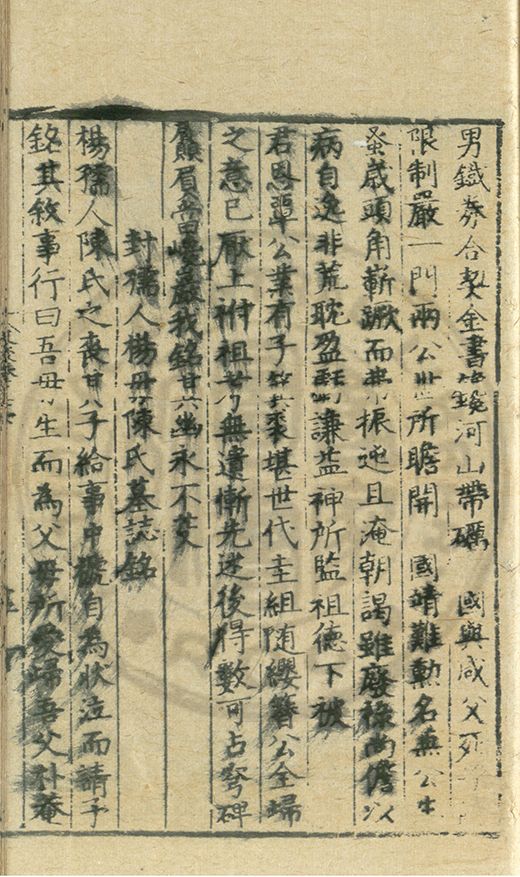 男鐵券合契金書鏤河山帶礪　國與咸父死
限制嚴一門兩公世所瞻開　國靖難勳名兼公生
蚤歲頭角嶄蹶而振迍且淹朝謁雖廢祿尚儋以
病自逸非荒耽盈酌謙益神所監祖德下被
君恩覃公業有子箕裘堪世代圭組隨纓簪公全歸
之意已厭上祔祖考無遺慚先迷後得數可占穹碑
贔屭巖我銘其幽永不芟
封孺人楊母陳氏墓誌銘
楊孺人陳氏之喪其子給事中自為狀泣而請予
銘其敘事行曰吾母生而為父母所愛歸吾父朴菴